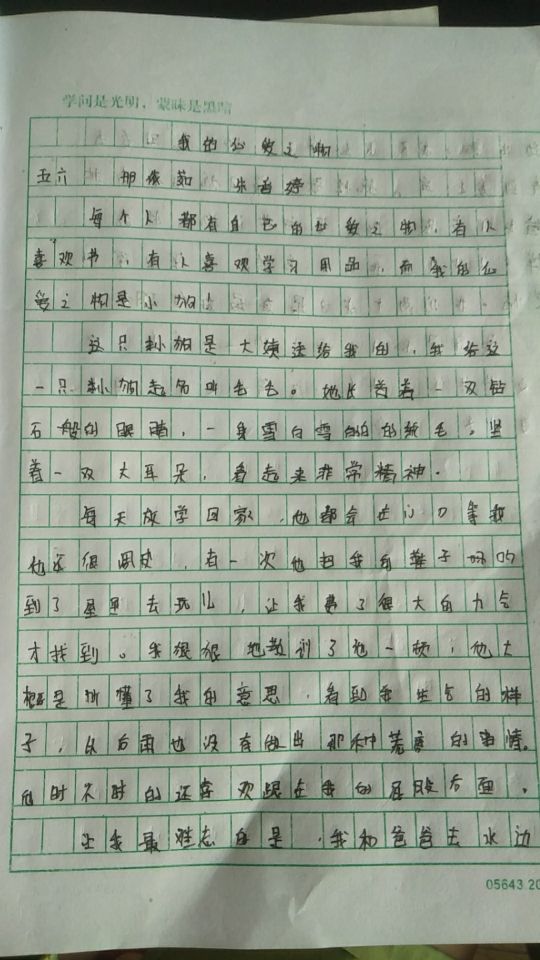 学问是光明，蒙昧是黑暗
我的心爱之物
五六班 那依茹 朱首婷
每个人都有自己的心爱之物，有人
喜欢书，有人喜欢学习用品，而我的心
爱之物是小狗。
这只小狗是大姨送给我的，我给这
一只小狗起名叫毛毛。地长着着一双钻
石般的眼睛，一身雪白雪白的绒毛，竖
着一双大耳朵，看起来非常精神。
每天放学回家，他都会在门口等我
他还很调皮，有一次他把我的鞋子
到了 去玩儿，让我费了很大的力气
才找到。我狠狠地教训了他一顿，他大
概是听懂了我的意思，看到我生气的样
子，以后再也没有做出那种荒唐的事情。
他时不时的还喜欢跟在我的屁股后面。
让我最难忘的是，我和爸爸去水边
05643 20